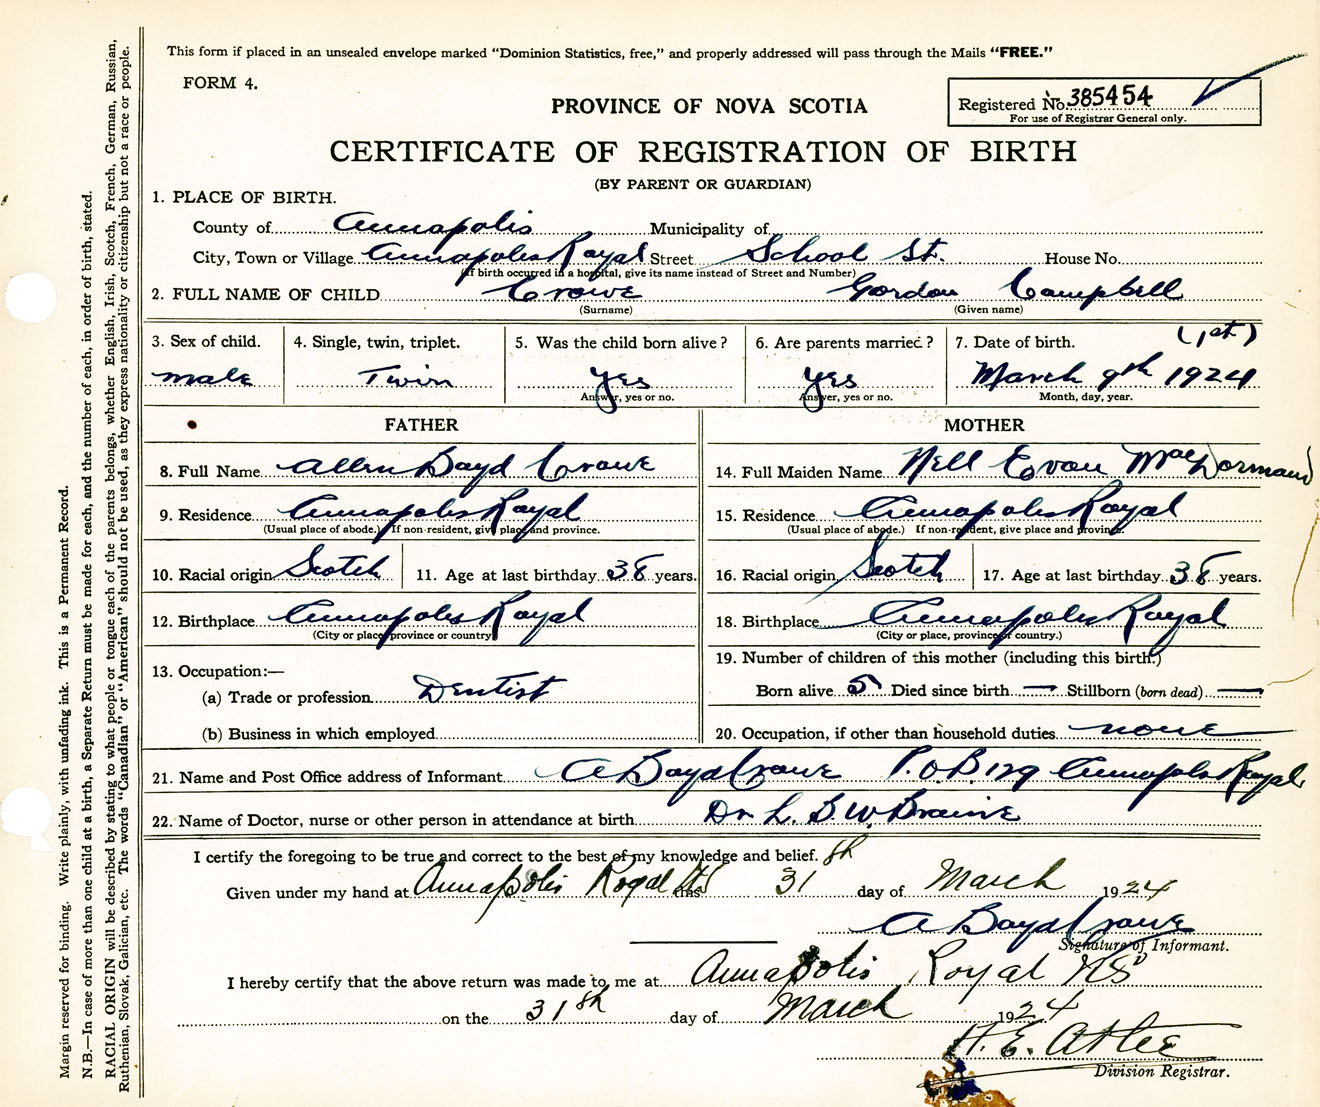 This form if placed in an unsealed envelope marked "Dominion Statistics, free," and properly addressed will pass through the Mails "FREE."
FORM 4.
Registered No. 385454
For use of Registrar General only.
PROVINCE OF NOVA SCOTIA
CERTIFICATE OF REGISTRATION OF BIRTH
(BY PARENT OR GUARDIAN)
1. PLACE OF BIRTH.
County of Annapolis Municipality of
City, Town or Village Annapolis Royal Street School St. House No.
(If birth occurred in a hospital, give its name instead of Street and Number)
2. FULL NAME OF CHILD Crowe Gordon Campbell
(Surname) (Given name)
3. Sex of child. 4. Single, twin, triplet. 5. Was the child born alive? 6. Are parents married? 7. Date of birth. (1st)
male Twin yes yes March 9th 1924
Answer, yes or no. Answer, yes or no. Month, day, year.
FATHER MOTHER
8. Full Name Allen Boyd Crowe 14. Full Maiden Name Nell Evan MacDormand
9. Residence Annapolis Royal 15. Residence Annapolis Royal
(Usual place of abode.) If non-resident, give place and province. (Usual place of abode.) If non-resident, give place and province.
10. Racial origin Scotch 11. Age at last birthday 38 years. 16. Racial origin Scotch 17. Age at last birthday 38 years.
12. Birthplace Annapolis Royal 18. Birthplace Annapolis Royal
(City or place, province or country) (City or place, province or country.)
13. Occupation:— 19. Number of children of this mother (including this birth.)
(a) Trade or profession Dentist Born alive 5 Died since birth — Stillborn (born dead) —
(b) Business in which employed 20. Occupation, if other than household duties none
21. Name and Post Office address of Informant A Boyd Crowe P.O.B. 129 Annapolis Royal
22. Name of Doctor, nurse or other person in attendance at birth Dr. L. B. W. Braine
I certify the foregoing to be true and correct to the best of my knowledge and belief.
Given under my hand at Annapolis Royal NS this 31st day of March 1924
A Boyd Crowe
Signature of Informant.
I hereby certify that the above return was made to me at Annapolis Royal NS
on the 31st day of March 1924
H. E. Atlee
Division Registrar.
Margin reserved for binding. Write plainly, with unfading ink. This is a Permanent Record.
N.B.—In case of more than one child at a birth, a Separate Return must be made for each, and the number of each, in order of birth, stated.
RACIAL ORIGIN will be described by stating to what people or tongue each of the parents belongs, whether English, Irish, Scotch, French, German, Russian,
Ruthenian, Slovak, Galician, etc. The words "Canadian" or "American" should not be used, as they express nationality or citizenship but not a race or people.